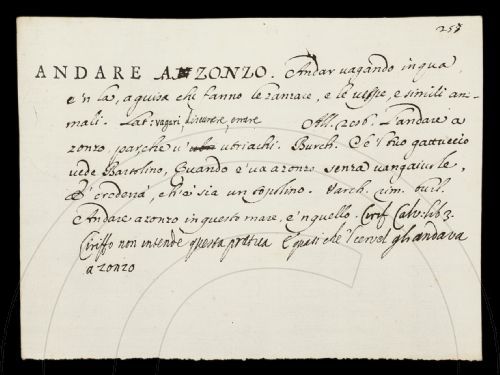 257
ANDARE A ZONZO. Andar vagando in qua,
e 'n là, a guisa che fanno le zanzare, e le vespe, e simili ani-
mali. Lat: vagari, errare All. 206. L'andare a
zonzo, parche v' ubriachi. Burch. Se 'l tuo gattuccio
vede Bartolino, Quando e' va a zonzo senza vangaiuole,
E' crederrà, ch' e' sia un topolino. Varch. rim. burl.
Andare a zonzo in questo mare, e 'n quello. Cirif. Calv: lib 3.
Ciriffo non intende questa pratica E quasi che 'l cervel gli andava
a zonzo